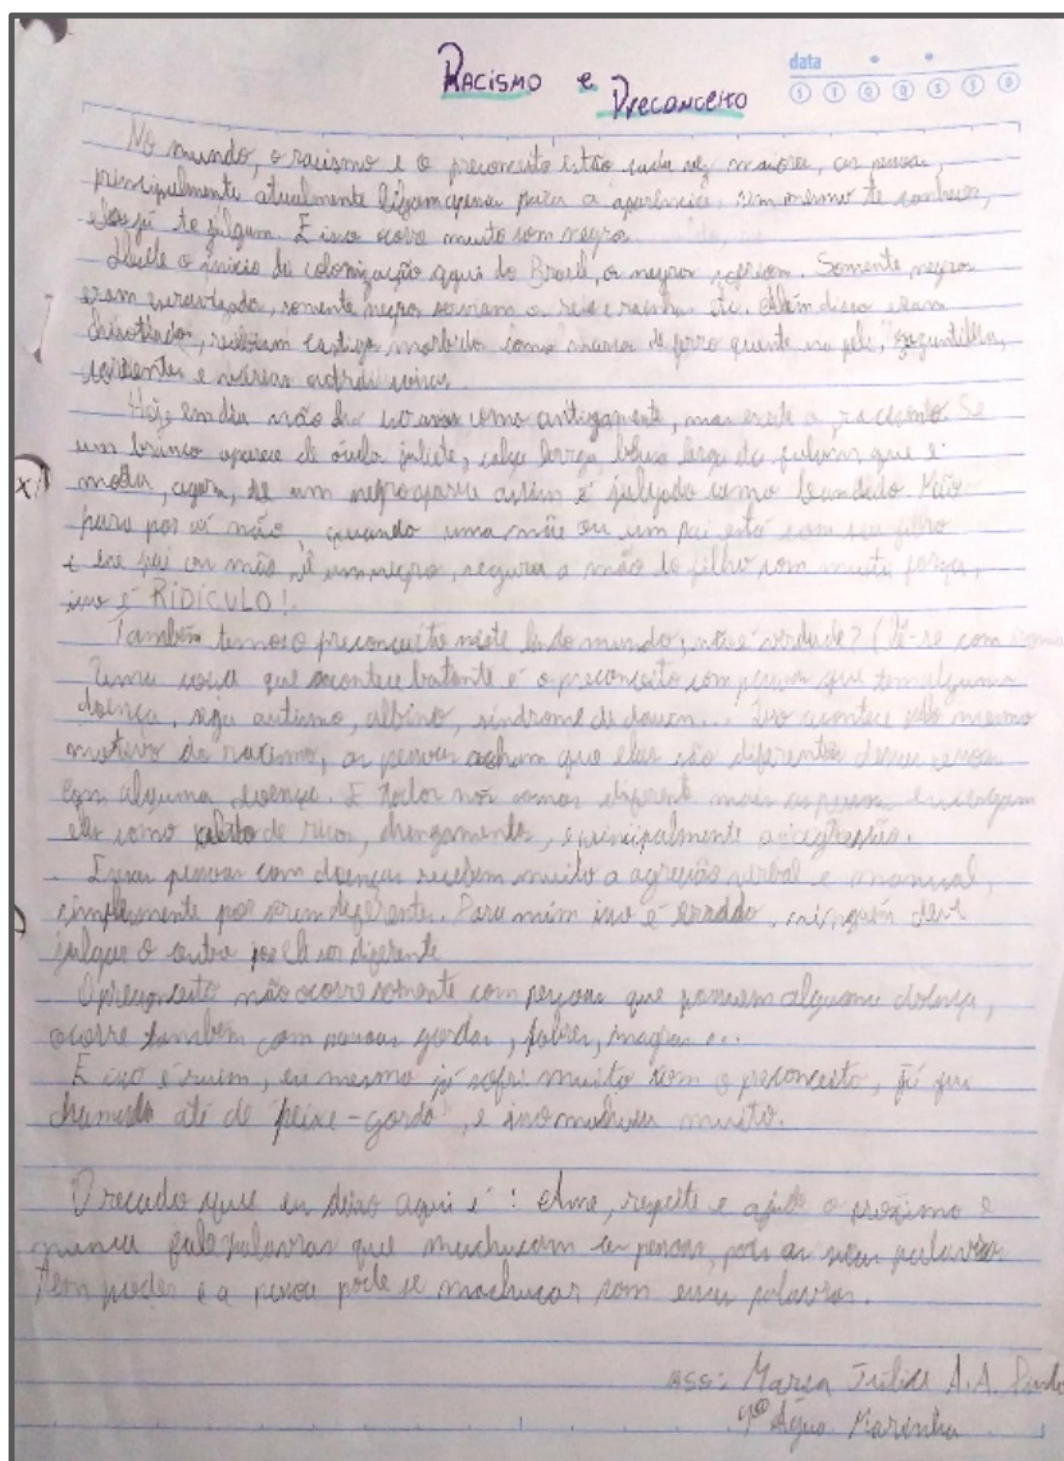 Racismo e Preconceito
data
S T Q Q S S D
No mundo, o racismo e o preconceito estão cada vez maiores, as pessoas,
principalmente atualmente ligam apenas para a aparência, sem mesmo te conhecer,
elas já te julgam. E isso ocorre muito com negro
o início da colonização aqui do Brasil, os negros sofriam. Somente negros
eram escravizados, somente negros serviam a reis e rainhas etc. Além disso eram
chicoteados, recebiam castigos como marca de ferro quente na pele,
correntes e várias outras coisas.
Hoje em dia não há como antigamente, mas existe o racismo. Se
um branco aparece de óculos juliete, calça larga, blusa larga etc. falam que é
moda, agora, se um negro aparece assim é julgado como bandido. Não
para por aí não, quando uma mãe ou um pai está com seu filho
e esse pai ou mãe vê um negro, segura a mão do filho com muita força,
isso é RIDÍCULO!
Também temos o preconceito neste lindo mundo, não é verdade? (Lê-se com
Uma coisa que acontece bastante é o preconceito com pessoas que tem alguma
doença, seja autismo, albino, síndrome de down... Isso acontece pelo mesmo
motivo do racismo, as pessoas acham que elas são diferentes dessas pessoas
com alguma doença. E todos nós somos diferente mais as pessoas enxergam
eles como de risos, e principalmente a agressão.
Essas pessoas com doenças recebem muito a agressão verbal e manual,
simplesmente por serem diferente. Para mim isso é erraddo, ninguém deve
julgar o outro por ser diferente
O preconceito não ocorre somente com pessoas que possuem alguma doença,
ocorre também com pessoas gordas, pobres, magras...
E isso é ruim, eu mesmo já sofri muito com o preconceito, já fui
chamada até de "peixe-gordo", e isso muito.
O recado que eu deixo aqui é: Ame, respeite e ajude o próximo e
nunca fale palavras que machucam as pessoas, pois as suas palavras
tem poder e a pessoa pode se machucar com essas palavras.
ass: Maria Júlia A.A.
Água Marinha